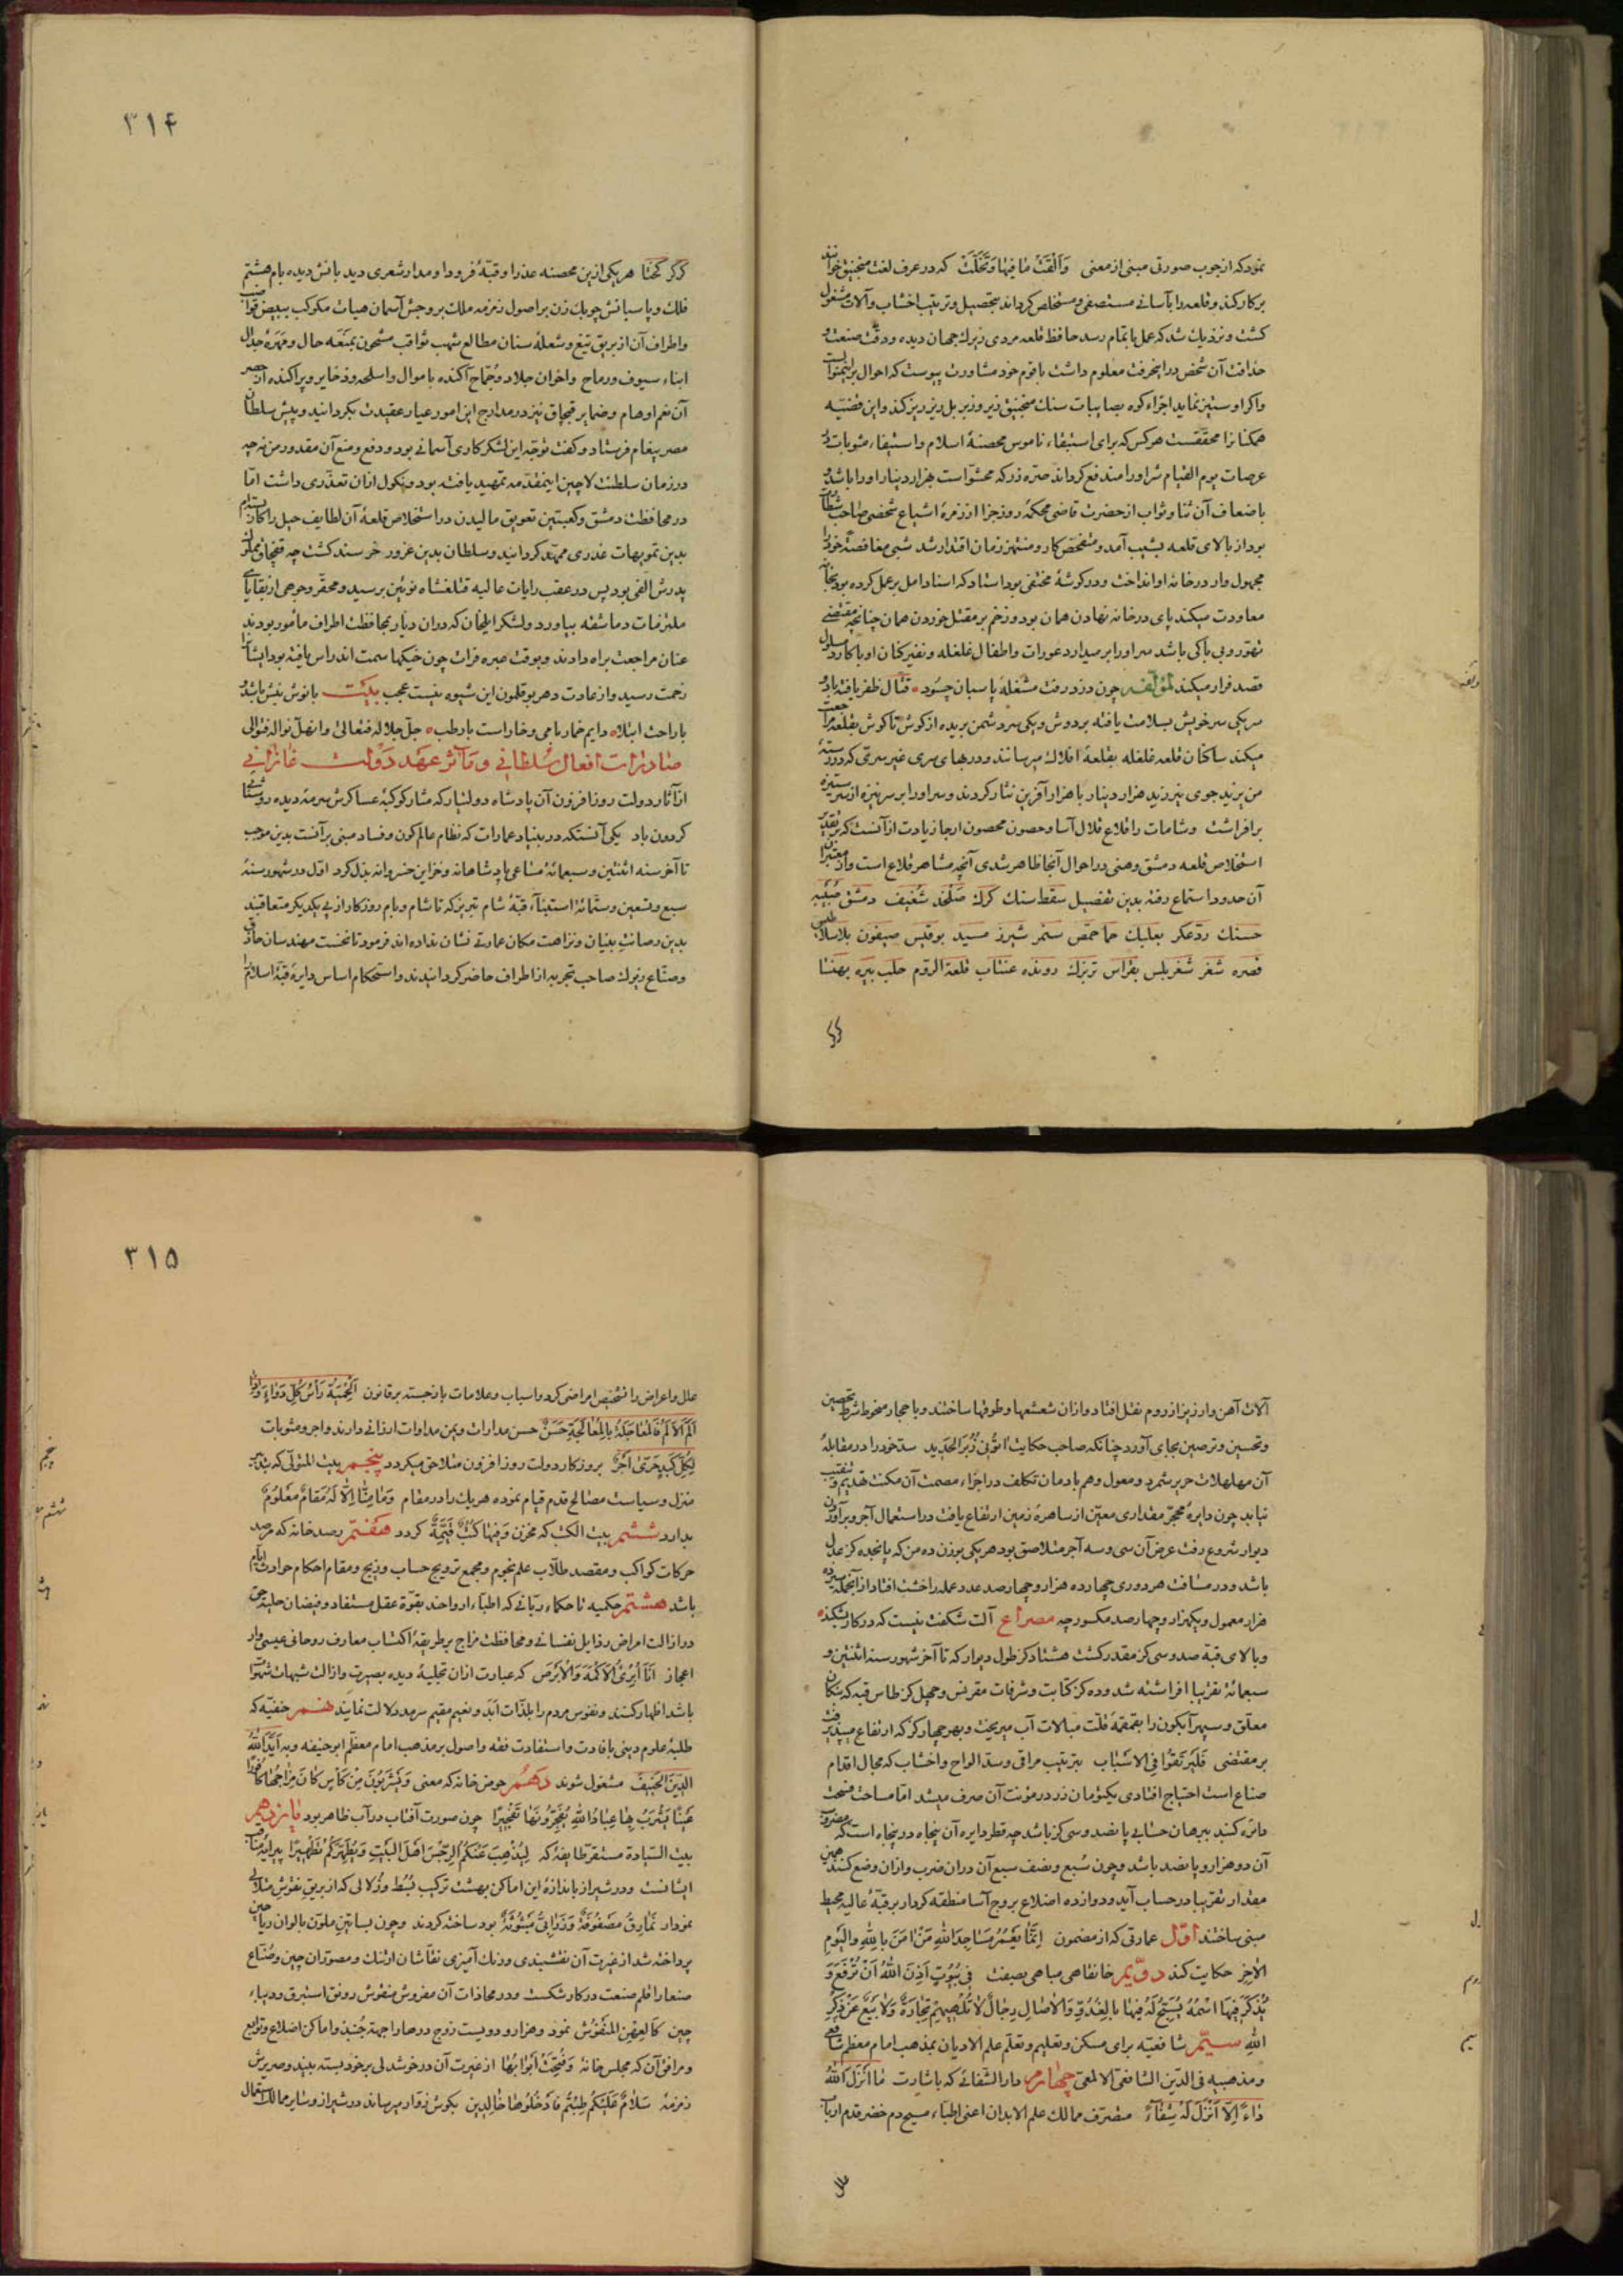 نمود که از چوب صورتی مبنی از معنی وَاَلْقَتْ مٰا فیها وَتَخَلَّتْ که در عرف لغت منجنیق خوانند
بر کار کند و قلعه را بآسانی مستصفی و مستخلص کرداند بتحصیل و ترتیب اخشاب و آلات مشغول
کشت و نزدیک شد که عمل باتمام رسد حافظ قلعه مردی زیرک جهان دیده و دقت صنعت و
حذاقت آن شخص در این حرفت معلوم داشت با قوم خود مشاورت پیوست که احوال بر اینمنوالست
و اکر او ستیز نماید اجزاء کوه بصایبات سنک منجنیق زیر و زبر بل ریز ریز کند و این قضیه
همکنانرا محققست هر کس که برای استبقاء ناموس محصنهٔ اسلام و استیفاء مثوبات در
عرصات یوم القیام شر او را مندفع کرداند صرّه زر که محشوّ است بهزار دینار او را باشد و
باضعاف آن ثنا و ثواب از حضرت قاضی محکمهٔ روز جزا از زمرهٔ اشیاع شخصی صاحب
بود از بالای قلعه بشیب آمد و متفحّص کار و منتهز زمان اقتدار شد شبی مغافصة خود را
مجهول وار در خانه او انداخت و در کوشهٔ مختفی بود استاد که اسنادامل بر عمل کرده بود بخانه
معاودت میکند پای در خانه نهادن همان بود و زخم بر مقتل خوردن همان چنانچه مقتضی
تهوّر و بی باکی باشد سر او را بر میدارد عورات و اطفال غلغله و نفیر کنان او با کارد مسلول
قصد فرار میکند لمؤلفه چون دزد رفت مشغلهٔ پاسبان چسود قتّال ظفر یافته باد و
سر یکی سر خویش بسلامت یافته بر دوش و یکی سر دشمن بریده از کوش تا کوش بقلعه مراجعت
میکند ساکنان قلعه غلغله بقلعهٔ افلاک میرسانند و در بهای سری غیر سرّی که در ورسته
من یزید جوی نیرزید هزار دینار با هزار آفرین نثار کردند و سر او را بر سر نیزه از سر ستیزه
برافراشت و شامات را قلاع قلال آسا و حصون محصون ارجا زیادت از آنست که بتقدیر
استخلاص قلعه دمشق وهنی در احوال آنجا ظاهر شدی آنچه مشاهر قلاع است و از معتبران
آن حدود استماع رفته بدین تفصیل سقط سنک کرک صلخد شغیف دمشق صُبَیْبه
حسنک ردّ عکر بعلبک حما حمص سنمر شیزر مسید بوقبیس صیفون بلاسلابلس
قصره شغر شغربلس بغراس تربزک رونده عنتاب قلعة الروم حلب بیره بهنسا
۳۱۴
کرکر کختا هر یکی ازین محصنه عذرا و قبّهٔ فرود او مدار شعری دید بانش دیده بام هشتم
فلک و پاسبانش چوبک زن بر اصول زمزمه ملک بروجش آسمان هیات مکوکب ببیض قواضب
و اطراف آن از بریق تیغ و شعلهٔ سنان مطالع شهب ثواقب مشحون بمنّعه حال و مهرهٔ جدال
ابناء سیوف و رماح و اخوان جلاد و جماح آکنده باموال و اسلحه و ذخایر و پراکنده از حصر
آن نعم اوهام و ضمایر قپچاق نیز در مدارج این امور عیار عقیدت بکردانید و پیش سلطان
مصر پیغام فرستاد و کفت توجّه این لشکر کاری آسمانی بود و دفع و منع آن مقدور من نه چه
در زمان سلطنت لاچین اینمقدّمه تمهید یافته بود و نکول ازان تعذّری داشت امّا
در محافظت دمشق و کعبتین تعویق مالیدن در استخلاص قلعهٔ آن لطایف حیل را کار بستدام
بدین تمویهات عذری ممهّد کردانید و سلطان بدین عزور خرسند کشت چه قپچاق مملوک
پدرش الفی بود پس در عقب رایات عالیه قتلغشاه نوئین برسید و محقّر وجوهی از بقایای
ملتزمات دماشقه بیاورد و لشکر ایلخان که دران دیار بمحافظت اطراف مأمور بودند
عنان مراجعت براه دادند و بوقت عبره فرات چون خیکها سمت اندراس یافته بود ایشانرا
زحمت رسید و از عادت دهر بوقلمون این شیوه نیست عجب بیت با نوش نیش باشد و
با راحت ابتلاه دایم خمار با می و خار است با رطب جلّ جلاله فتعالیٰ و انهلّ نواله فتوالی
صادرات افعال سلطانی و مآثر عهد دولت غازانی
از آثار دولت روز افزون آن پادشاه دولتیار که مثار کوکبهٔ عساکرش سرمهٔ دیده روشنی
کردون باد یکی آنستکه در بنیاد عمارات که نظام عالم کون و فساد مبنی بر آنست بدین موجب
تا آخر سنه اثنتین و سبعمائة مساعی پادشاهانه و خزاین خسروانه بذل کرد اوّل در شهور سنهٔ
سبع و تسعین و ستّمائة استبنآء قبّهٔ شام تبریز که تا شام و بام روزکار از پی یکدیکر متعاقبند
بدین رصانت بنیان و نزاهت مکان عمارتی نشان نداده اند فرمود تا نخست مهندسان حاذق
و صنّاع زیرک صاحب تجربه از اطراف حاضر کردانیدند و استحکام اساس دایرهٔ قبّهٔ اسلام را
آلات آهن و ارزیز از روم نقل افتاد و ازان شعشعها و طوقها ساختند و با حجار مخروط شرط تحصین
و تحسین و ترصین بجای آورد چنانکه صاحب حکایت اٰتُونِی زُبَرَ الْحَدید ستدخود را در مقابلهٔ
آن مهلهلات حریر شمرد و معول و هم با دمان تکلف در اجزاء مصمت آن مکنت تنقیب
نیابد چون دایرهٔ محجّر مقداری معیّن از ساهرهٔ زمین ارتفاع یافت در استعمال آجر و بر آوردن
دیوار شروع رفت عرض آن سی و سه آجر متلاصق بود هر یکی بوزن ده من که پانجده کز عدل
باشد و در مسافت هر دوری چهارده هزار و چهار صد عدد عمله راخشت افتاد از آنجمله سیزده
هزار معمول و یکهزار و چهارصد مکسور چه مصراع آلت شکفت نیست که در کار بشکند
و بالای قبّه صد و سی کز مقدر کشت هشتاد کز طول دیوار که تا آخر شهور سنه اثنتین و
سبعمائة تقریبا افراشته شد و ده کز کتابت و شرفات مقرنس و چهل کز طاس قبه که نیکان
معلّق و سپهر آبکون را بقمقمهٔ قلّت مبالات آب میریخت و بهر چهار کز که ارتفاع میپذیرفت
بر مقتضی فَلْیَرْتَقُوا فِی الْاَسْبٰاب بترتیب مراقی و سدّ الواح و اخشاب که مجال اقدام
صناع است احتیاج افتادی یکتومان زر در مؤنت آن صرف میشد امّا مساحت مسّحت
دائره کنبد ببرهان حسابی پانصد و سی کز باشد چه قطر دایره آن پنجاه در پنجاه است که مضروب
آن دو هزار و پانصد باشد و چون سُبع و نصف سبع آن دران ضرب و ازان وضع کنند همین
مقدار تقریبا در حساب آید و دوازده اضلاع بروج آسا منطقه کردار بر قبّهٔ عالیه محیط
مبنی ساختند اوّل عمارتی که از مضمون اِنَّمٰا یَعْمُرُ مَسٰاجِدَ اللّٰهِ مَنْ اٰمَنَ بِاللّٰهِ وَالْیَوْمِ
الْاٰخِرِ حکایت کند دوّیم خانقاهی مباهی بصفت فی بُیُوتٍ اَذِنَ اللّٰهُ اَنْ تُرْفَعَ وَ
یُذْکَرَ فیهَا اسْمُهُ یُسَبِّحُ لَهُ فیهٰا بِالْغُدُوِّ وَالْاٰصٰالِ رِجٰالٌ لٰا تُلْهیهِمْ تِجٰارَةٌ وَلٰا بَیْعٌ عَنْ ذِکْرِ
اللّٰهِ سیّم شافعیّه برای مسکن و تعلیم و تعلّم علم الادیان بمذهب امام معظم شافعی
و مذهبیه فی الدّین الشافعی الالمعی چهارم دار الشفائی که باشارت مٰا اَنْزَلَ اللّٰهُ
دٰاءً اِلّٰا اَنْزَلَ لَهُ شِفٰآءً متصرّف ممالک علم الابدان اعنی اطبّاء مسیح دم خضر قدم ارباب
علل
۳۱۵
علل و اعراض را تشخیص امراضی کرد و اسباب و علامات بازجسته بر قانون اَلْحِمْیَةُ رَأْسُ کُلِّ دَوٰاءٍ وَ اِذٰا
اَلَمَّ الْاَلَمُ فَالْمُعٰاجَلَةُ بِالْمُعٰالَجَةِ حَسَنٌ حسن مدارات و یمن مداوات ارزانی دارند و اجر و مثوبات
لِکُلِّ کَبِدٍ حَرّیٰ اَجْرٌ بروزکار دولت روز افزون متلاحق میکردد پنجم بیت المتولّی که تدبیر
منزل و سیاست مصالح قدم قیام نموده هر یک را در مقام وَمٰا مِنّٰا اِلّٰا لَهُ مَقٰامٌ مَعْلُومٌ
بدارد ششم بیت الکتب که مخزن وَفیهٰا کُتُبٌ قَیِّمَةٌ کردد هفتم رصد خانه که مرصد
حرکات کواکب و مقصد طلّاب علم نجوم و مجمع ترویج حساب و زیج و مقام احکام حوادث ایّام
باشد هشتم حکمیه تا حکماء ربّانی که اطبّاء ارواحند بقوّة عقل مستفاد و فیضان جلیهٔ حق
در ازالت امراض رذایل نفسانی و محافظت مزاج بر طریقهٔ اکتساب معارف روحانی عیسی وار
اعجاز اَنَا اُبْرِئُ الْاَکْمَهَ وَالْاَبْرَصَ که عبارت ازان تجلیهٔ دیده بصیرت و ازالت شبهات
باشد اظهار کنند و نفوس مردم را بلذّات ابد و نعیم مقیم سرمد دلالت نمایند نهم حنفیّه که
طلبهٔ علوم دینی بافادت و استفادت فقه و اصول بر مذهب امام معظّم ابو حنیفه و به اَیَّدَ اللّٰهُ
الدّینَ الْحَنیفَ مشغول شوند دهم حوض خانه که معنی وَیَشْرَبُونَ مِنْ کَأْسٍ کٰانَ مِزٰاجُهٰا کٰافُوراً
عَیْناً یَشْرَبُ بِهٰا عِبٰادُ اللّٰهِ یُفَجِّرُونَهٰا تَفْجیراً چون صورت آفتاب در آب ظاهر بود یازدهم
بیت السّیادة مستقر طایفهٔ که لِیُذْهِبَ عَنْکُمُ الرِّجْسَ اَهْلَ الْبَیْتِ وَیُطَهِّرَکُمْ تَطْهیراً پیرایهٔ مناقب
ایشانست و در شیراز باندازهٔ این اماکن بهشت ترکیب بُسُط و زُلالی که از بریق نقوش متلالی
نمودار نَمٰارِقُ مَصْفُوفَةٌ وَزَرٰابِیُّ مَبْثُوثَةٌ بود ساخته کردند و چون بساتین ملوّن بالوان ریاحین
پرداخته شد از غیرت آن نقشبندی و رنک آمیزی نقّاشان ارتنک و مصوّران چین و صُنّاع
صنعا را قلم صنعت در کار شکست و در محاذات آن مفروش منقوش رونق استبرق و دیباء
چین کَالْعِهْنِ الْمَنْفُوشِ نمود و هزار و دویست زوج درها را جهة جُنبذ و اماکن اضلاع و توابع
و مرافق آن که مجلس خانهٔ وَفُتِحَتْ اَبْوٰابُهٰا از غیرت آن در خوشدلی بر خود بسته بیند و صریرش
زمزمهٔ سَلٰامٌ عَلَیْکُمْ طِبْتُمْ فَادْخُلُوهٰا خٰالِدینَ بکوش زوّار میرساند در شیراز و سایر ممالک استعمال